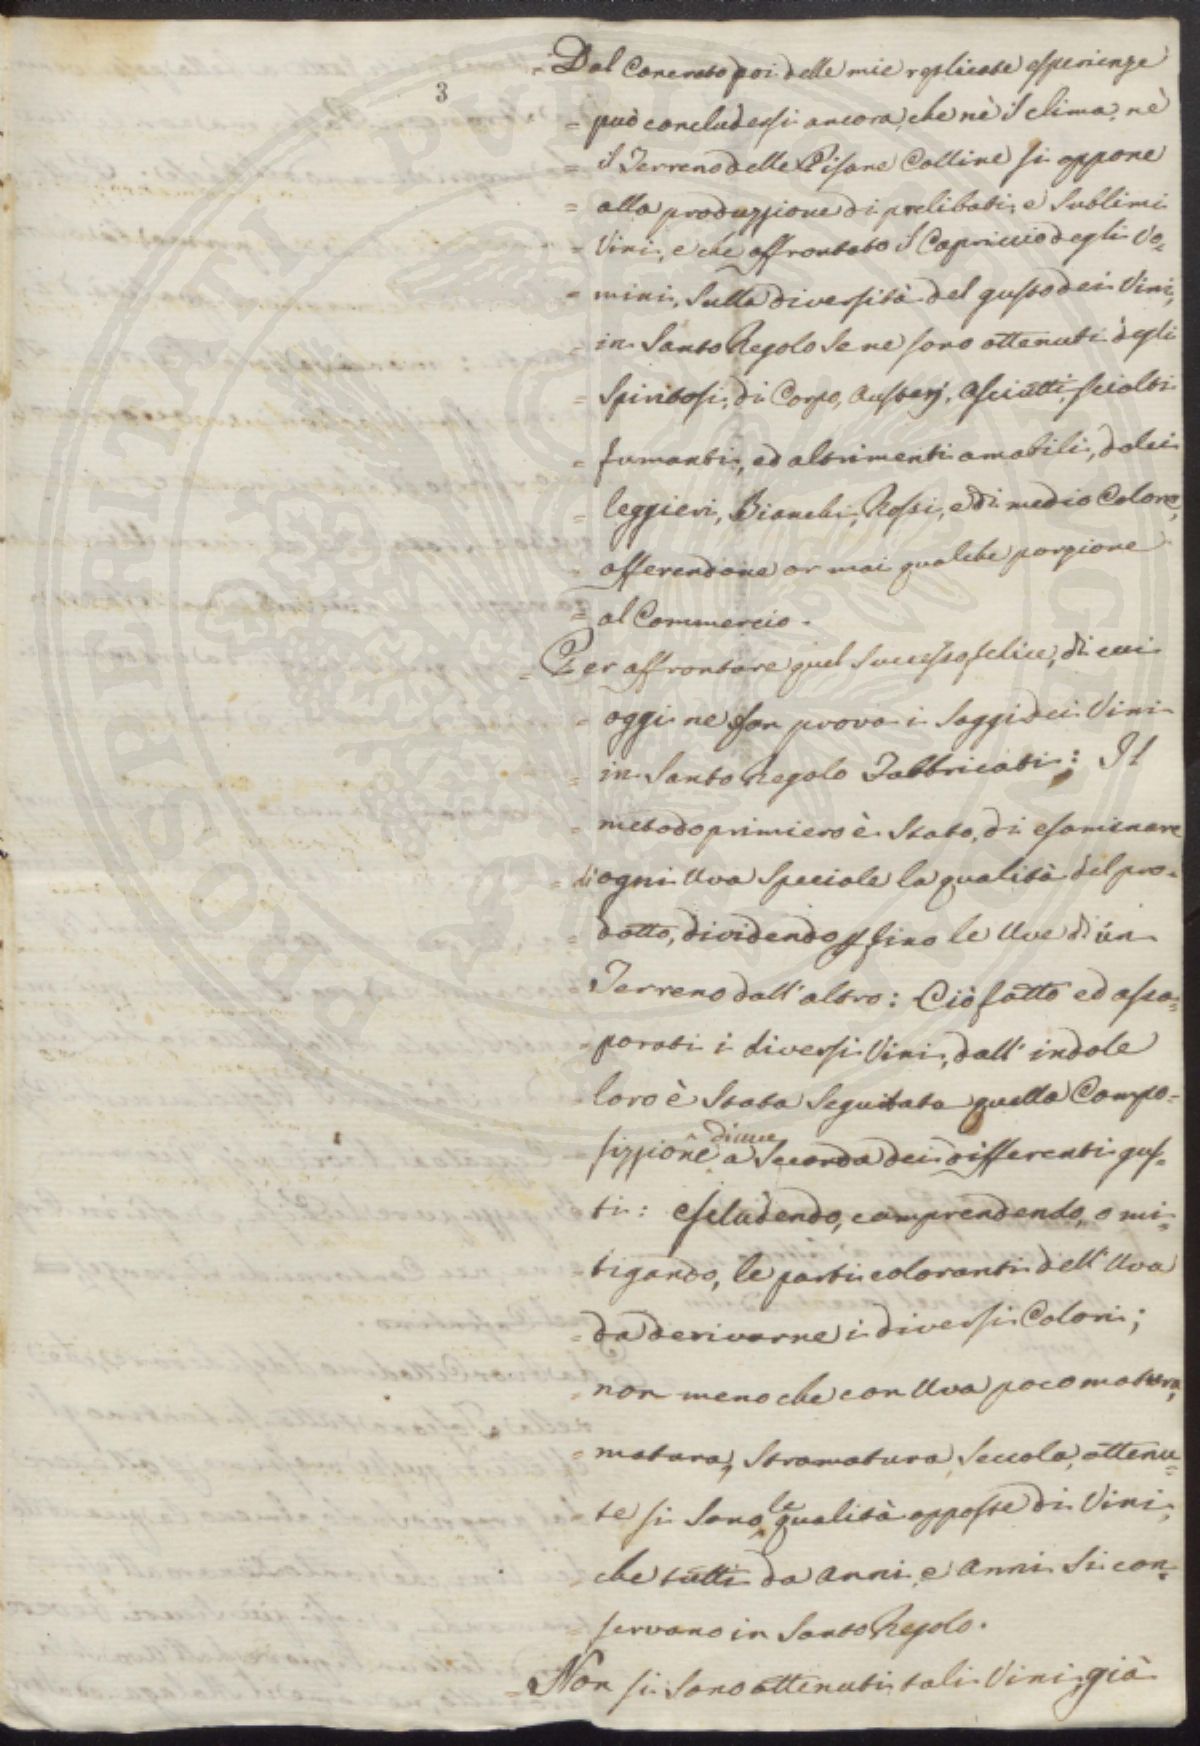 3
Dal Concreto poi delle mie replicate esperienze
= può concludersi ancora, che nè il clima, nè
= il Terreno delle Pisane Colline si oppone
= alla produzzione di prelibati, e Sublimi
= Vini, e che affrontato il Capriccio degli Uo=
= mini, Sulla diversità del gusto dei Vini,
= in Santo Regolo Se ne sono ottenuti degli
= Spiritosi, di Corpo, Austerj, Asciutti, sciolti
= fumanti, ed altrimenti amabili, dolci
= leggieri, Bianchi, Rossi, e di medio Colore,
= offerendone or mai qualche porzione
= al Commercio.
= Per affrontare quel Successo felice, di cui
= oggi ne fan prova i Saggi dei Vini
= in Santo Regolo Fabbricati: Il
= metodo primiero è Stato, di esaminare
= di ogni Uva Speciale la qualità del pro=
= dotto, dividendo fino le Uve di un
= Terreno dall'altro: Ciò fatto ed assa=
= porati i diversi Vini, dall'indole
loro è Stata Seguitata quella Compo=
= sizzione d'uve a Seconda dei differenti gus=
= ti: escludendo, comprendendo, o mi=
= tigando, le parti coloranti dell'Uva
= da derivarne i diversi Colori;
= non meno che con Uva poco matura,
= matura, Stramatura, Seccola, ottenu=
= te si Sono le qualità opposte di Vini,
= che tutti da Anni, e Anni Si con=
= servano in Santo Regolo.
= Non si Sono ottenuti tali Vini già
PROSPERITATI PUBLICAE